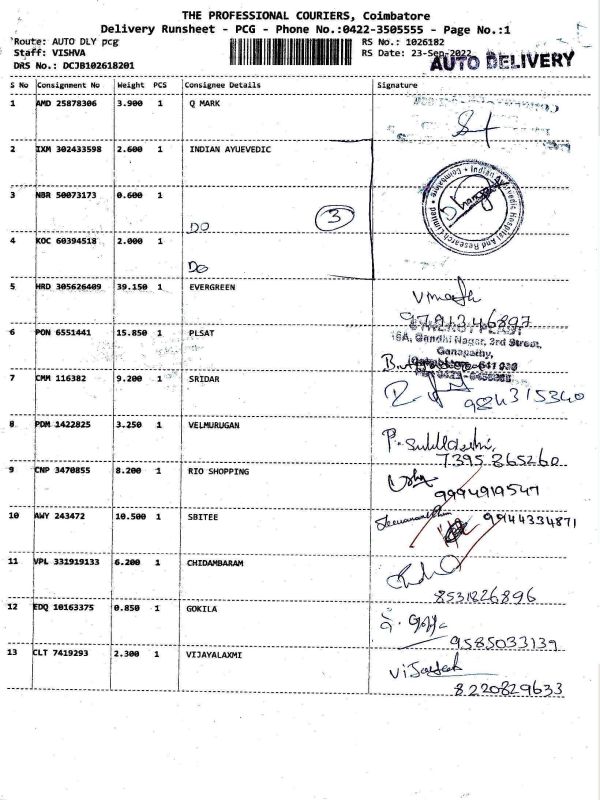 THE PROFESSIONAL COURIERS, Coimbatore
Delivery Runsheet - PCG - Phone No.:0422-3505555 - Page No.:1
Route: AUTO DLY pcg RS No.: 1026182
Staff: VISHVA RS Date: 23-Sep-2022
DRS No.: DCJB102618201 AUTO DELIVERY
S No Consignment No Weight PCS Consignee Details Signature
1 AMD 25878306 3.900 1 Q MARK
2 IXM 302433598 2.600 1 INDIAN AYUEVEDIC
Indian Ayurvedic Hospital And Research Limited Coimbatore
3 NBR 50073173 0.600 1
DO 3
4 KOC 60394518 2.000 1
DO
5 HRD 305626409 39.150 1 EVERGREEN
6 PON 6551441 15.850 1 PLSAT
16A, Gandhi Nagar, 3rd Street,
Ganapathy,
7 CMM 116382 9.200 1 SRIDAR
9824315340
8 PDM 1422825 3.250 1 VELMURUGAN
7395865260
9 CNP 3470855 8.200 1 RIO SHOPPING
9994919547
10 AWY 243472 10.500 1 SBITEE
9944334871
11 VPL 331919133 6.200 1 CHIDAMBARAM
8531826896
12 EDQ 10163375 0.850 1 GOKILA
9585033139
13 CLT 7419293 2.300 1 VIJAYALAXMI
8220829633